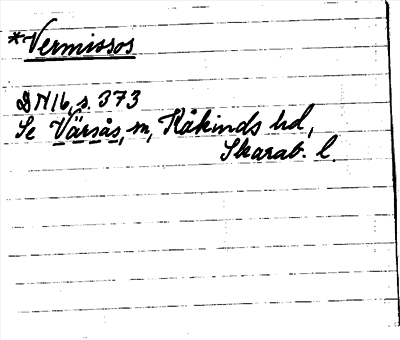 *Vermissos
DN16, s. 373
Se Värsås, sn, Kåkinds hd,
Skarab. l.